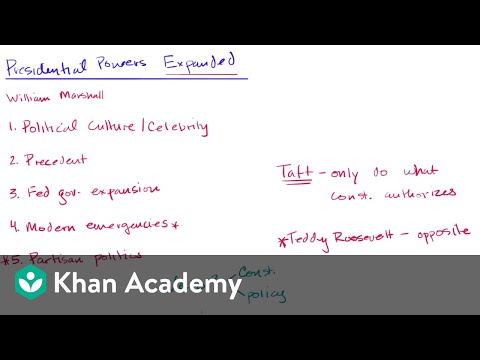 Presidential Powers Expanded
William Marshall
1. Political Culture/Celebrity
2. Precedent
3. Fed gov. expansion
4. Modern emergencies*
*5. Partisan politics
Taft - only do what
const. authorizes
*Teddy Roosevelt - opposite
Const.
policy
Khan Academy